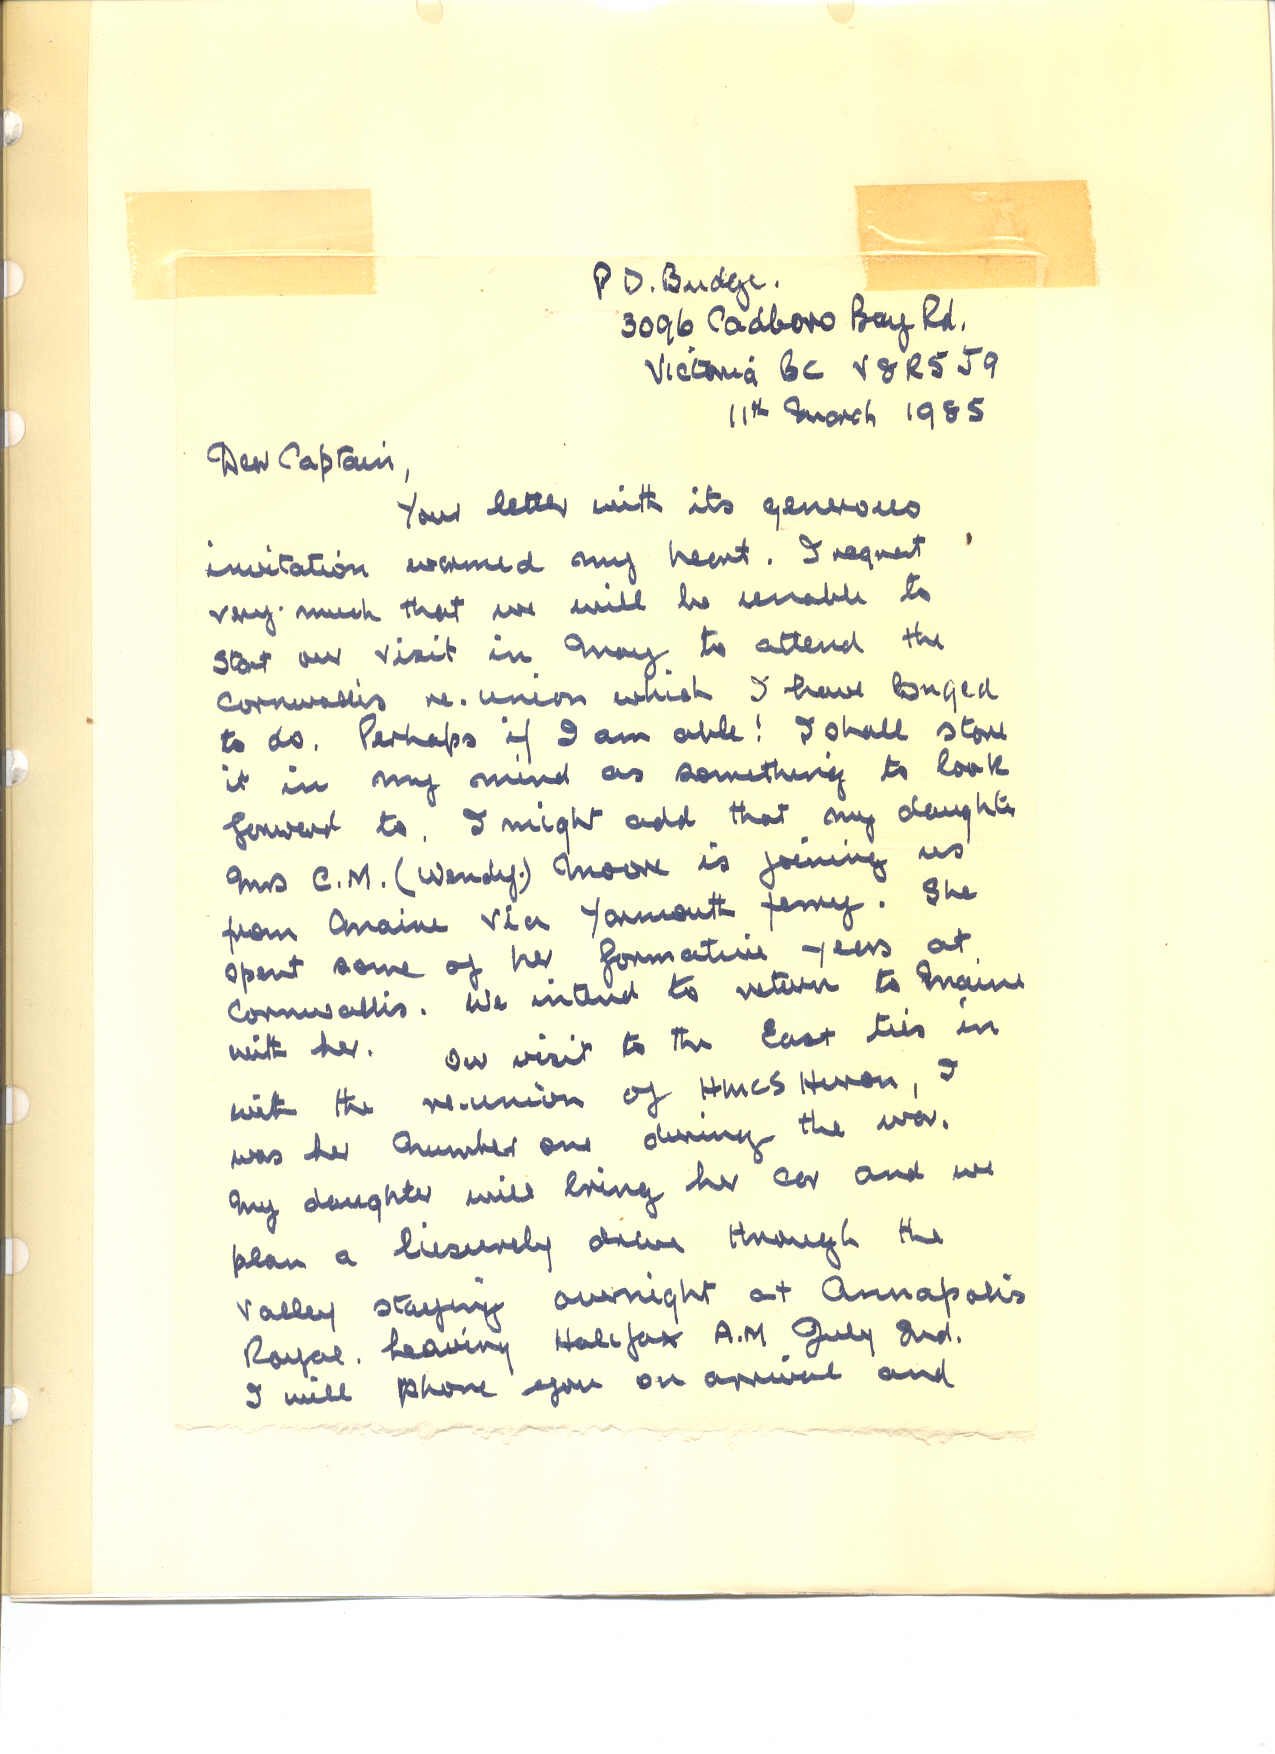 P D. Budge.
3096 Cadboro Bay Rd.
Victoria BC V8R5J9
11th March 1985
Dear Captain,
Your letter with its generous
invitation warmed my heart. I regret
very much that we will be unable to
start our visit in May to attend the
Cornwallis re.union which I have longed
to do. Perhaps if I am able! I shall store
it in my mind as something to look
forward to. I might add that my daughter
Mrs C.M. (Wendy.) Moore is joining us
from Maine via Yarmouth ferry. She
spent some of her formative years at
Cornwallis. We intend to return to Maine
with her. Our visit to the East ties in
with the re.union of HMCS Huron, I
was her number one during the war.
My daughter will bring her car and we
plan a liesurely drive through the
valley staying overnight at Annapolis
Royal. leaving Halifax A.M July 2nd.
I will phone you on arrival and